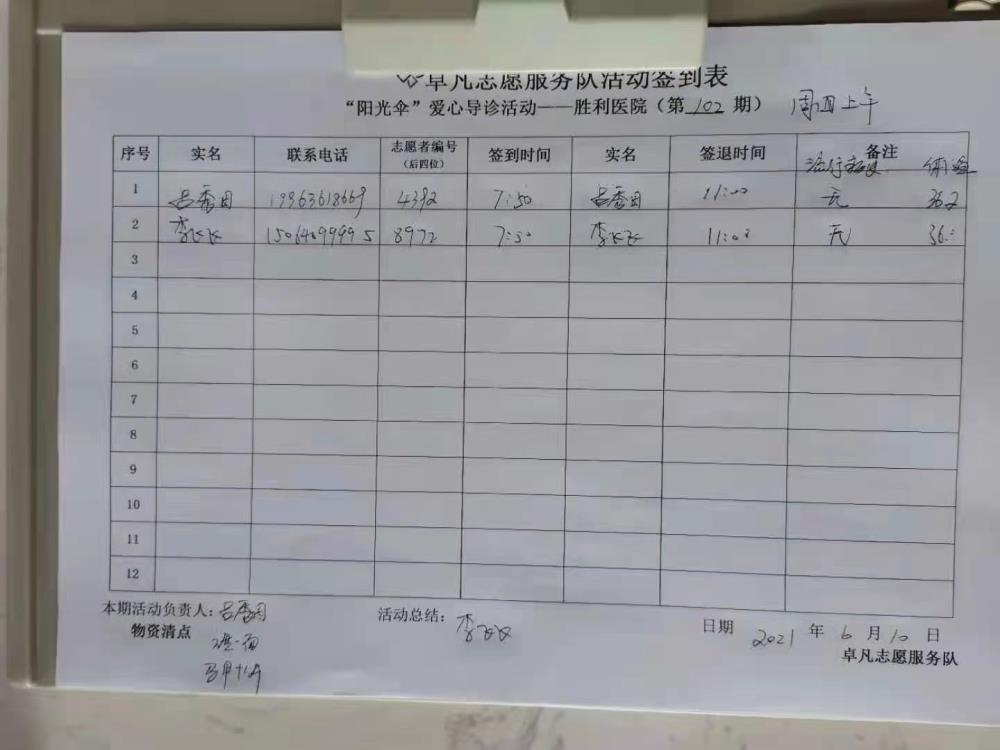 卓凡志愿服务队活动签到表
“阳光伞”爱心导诊活动——胜利医院（第 102 期） 周四上午
序号 实名 联系电话 志愿者编号（后四位） 签到时间 实名 签退时间 备注
1 吕秀田 19963618669 4392 7:50 吕秀田 11:00 无 36.2
2 李飞飞 15064099995 8972 7:50 李飞飞 11:00 无 36.
3
4
5
6
7
8
9
10
11
12
本期活动负责人：吕秀田 活动总结：李飞飞 日期 2021 年 6 月 10 日
物资清点
卓凡志愿服务队